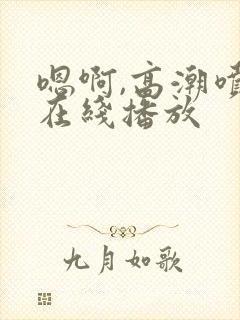 嗯啊,高潮喷
在綫播放
九月如歌